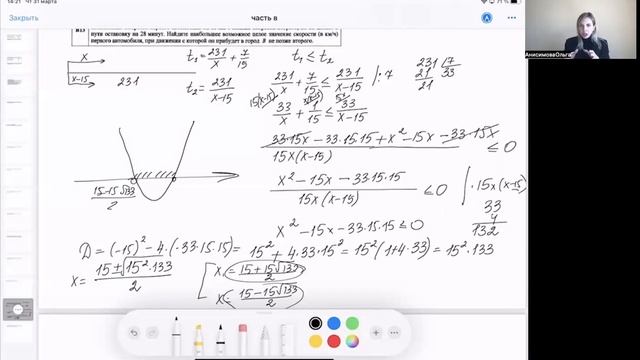 14:21 Чт 31 марта
часть в
В13
пути остановку на 28 минут. Найдите наибольшее возможное целое значение скорости (в км/ч)
первого автомобиля, при движении с которой он прибудет в город B не позже второго.
АнисимоваОльга
x
x-15
231
t₁ = 231/x + 7/15
t₂ = 231/(x-15)
t₁ ≤ t₂
231/x + 7/15 ≤ 231/(x-15) | :7
231 | 7
21 33
21
15(x-15) 33/x + 1/15 ≤ 33/(x-15)
(33·15x - 33·15·15 + x² - 15x - 33·15x)/(15x(x-15)) ≤ 0
(x² - 15x - 33·15·15)/(15x(x-15)) ≤ 0 | · 15x(x-15)
33
4
132
x² - 15x - 33·15·15 ≤ 0
(15-15√133)/2
D = (-15)² - 4·(-33·15·15) = 15² + 4·33·15² = 15²(1+4·33) = 15²·133
x = (15±√15²·133)/2
x = (15+15√133)/2
x = (15-15√133)/2